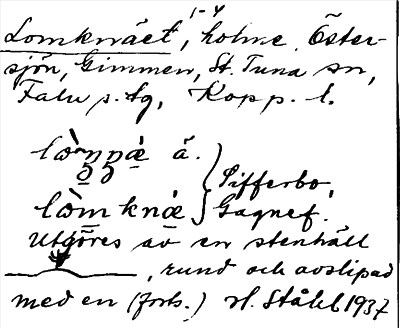 1-4
Lomknäet, holme Öster-
sjön, Gimmen, St. Tuna sn,
Falu s. tg, Kopp. l.
lòm knǽ
Sifferbo,
Gagnef.
Utgöres av en stenhäll
, rund och avslipad
med en (forts.) H. Ståhl 1937